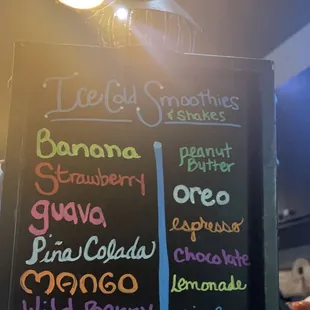 Ice Cold Smoothies
& Shakes
Banana
Strawberry
guava
Piña Colada
MANGO
Wild Berry
peanut
Butter
OREO
espresso
CHOCOLATE
Lemonade